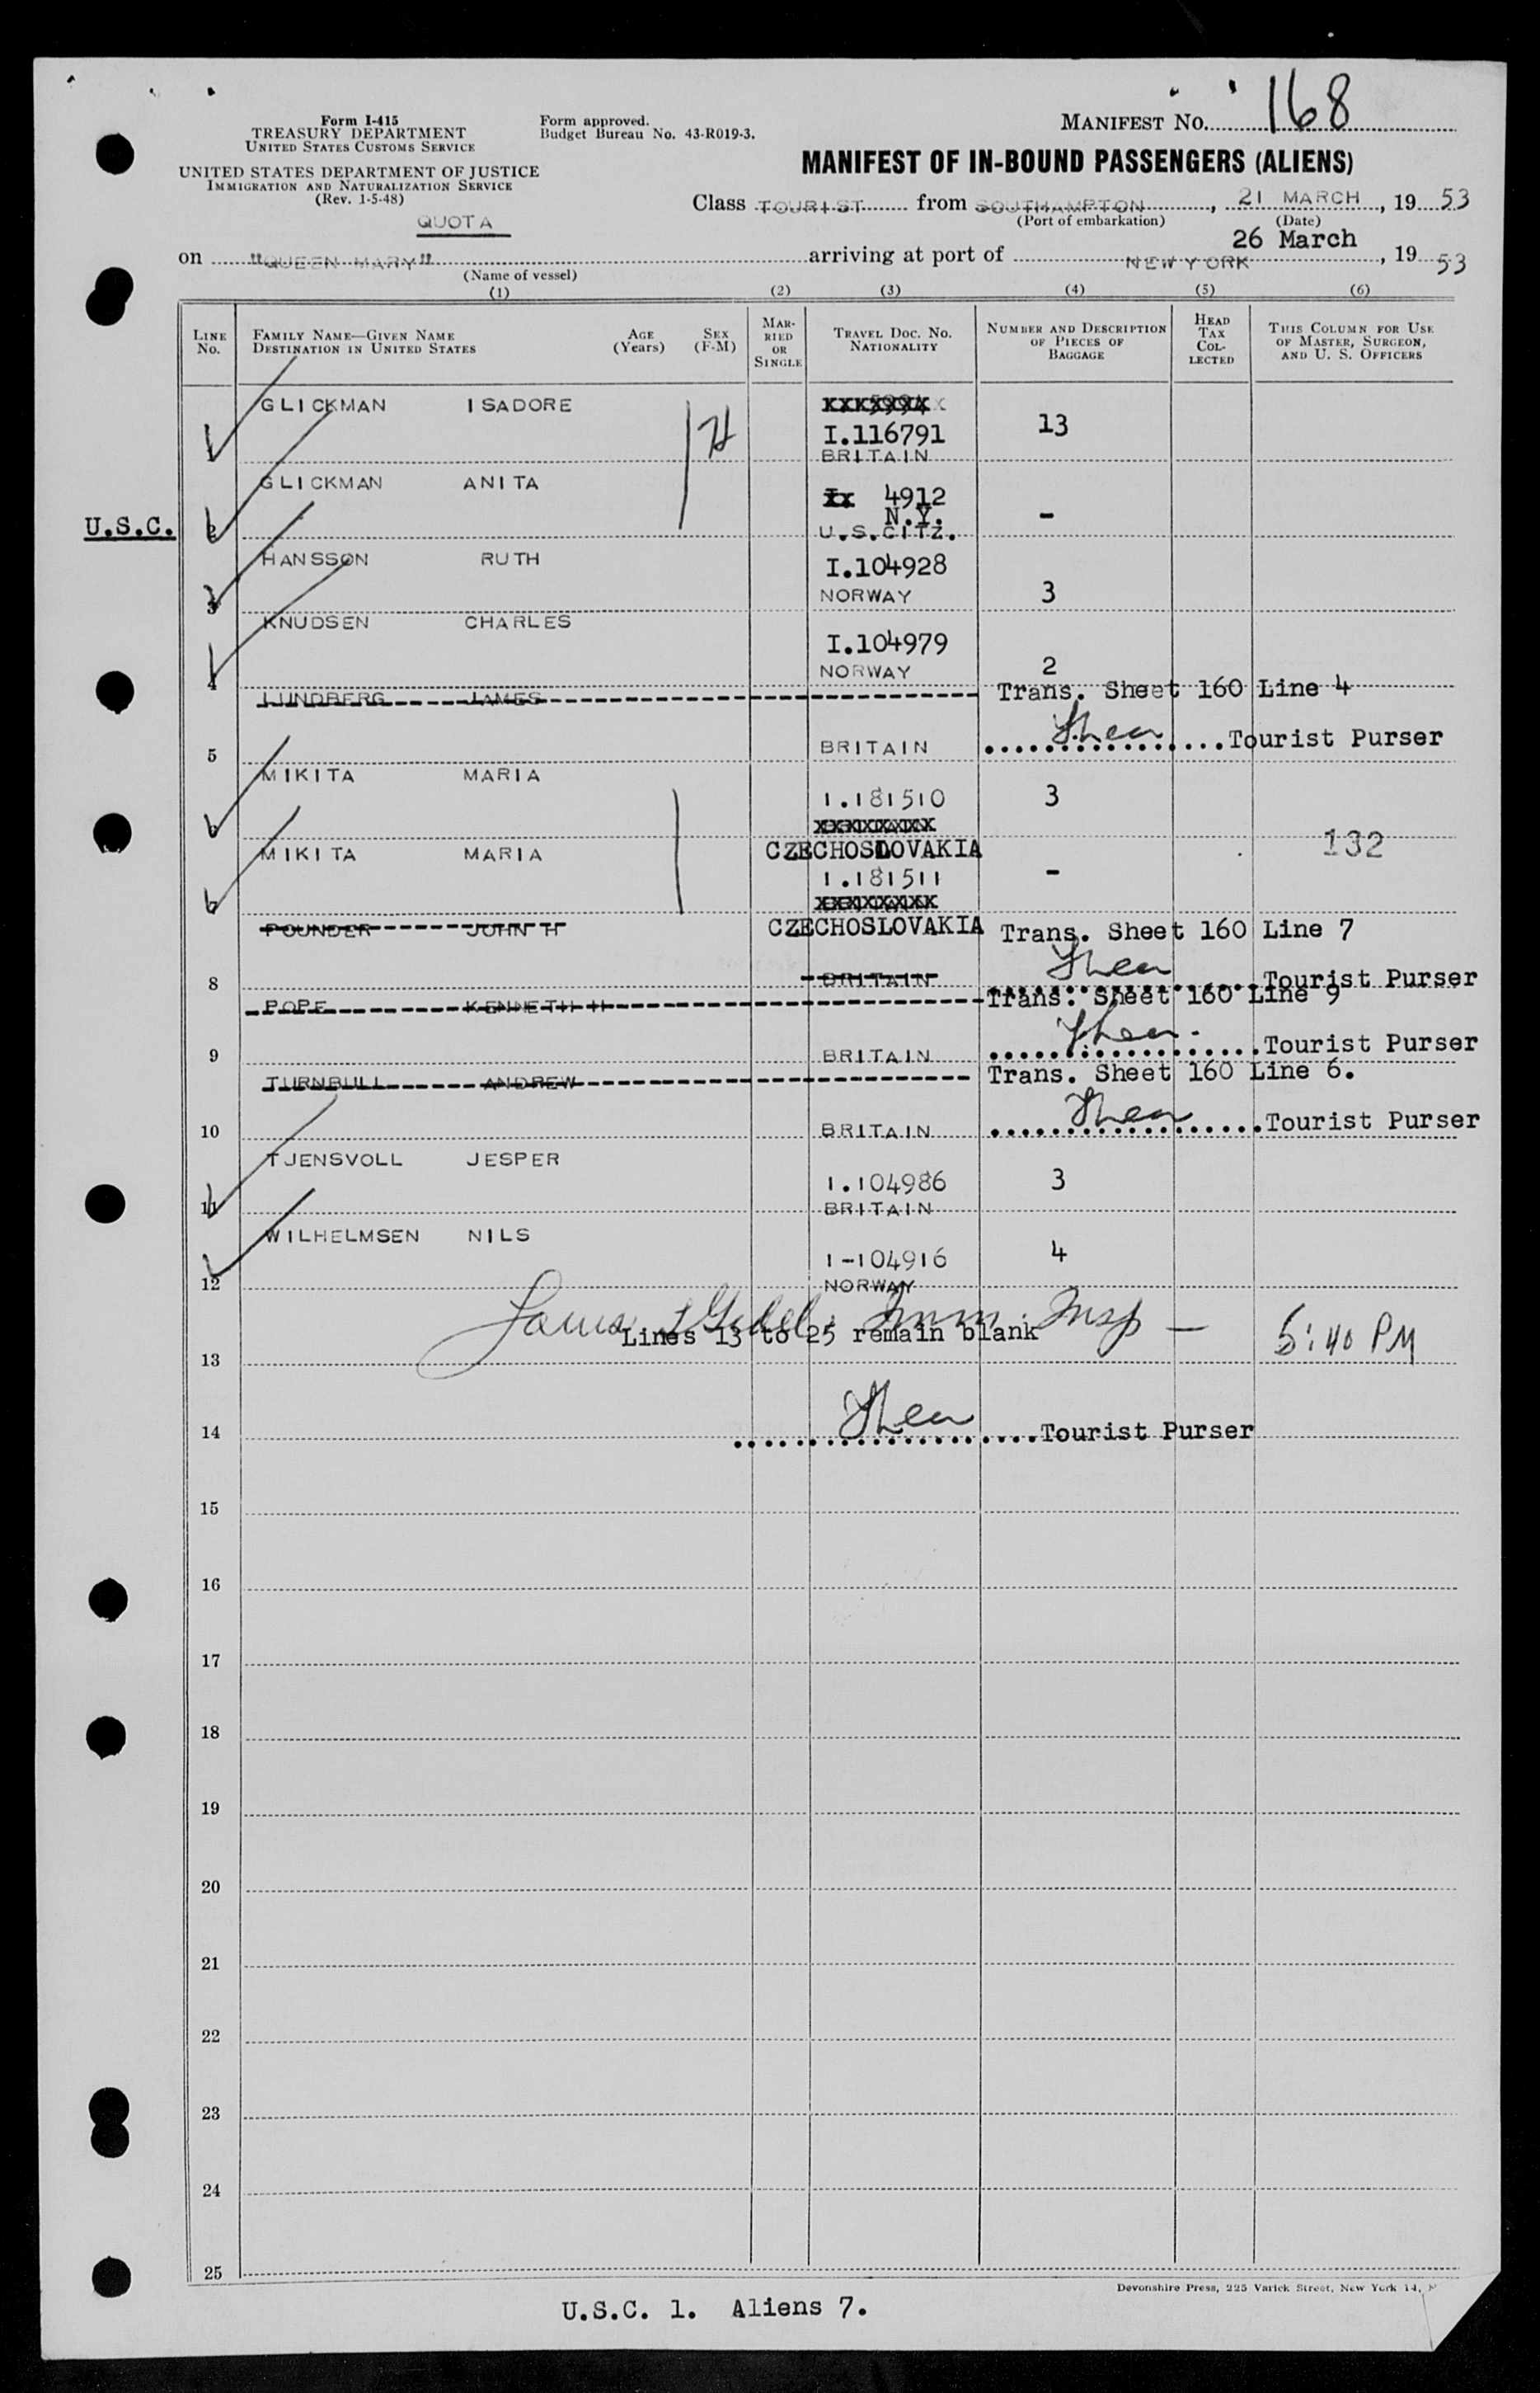 Form I-415
TREASURY DEPARTMENT
UNITED STATES CUSTOMS SERVICE
UNITED STATES DEPARTMENT OF JUSTICE
IMMIGRATION AND NATURALIZATION SERVICE
(Rev. 1-5-48)
Form approved.
Budget Bureau No. 43-R019-3.
MANIFEST No. 168
MANIFEST OF IN-BOUND PASSENGERS (ALIENS)
Class TOURIST from SOUTHAMPTON, 21 MARCH, 1953
(Port of embarkation) (Date)
QUOTA
26 March
on "QUEEN MARY" arriving at port of NEW YORK, 1953
(Name of vessel)
(1) (2) (3) (4) (5) (6)
LINE No. FAMILY NAME—GIVEN NAME DESTINATION IN UNITED STATES AGE (Years) SEX (F-M) MARRIED OR SINGLE TRAVEL DOC. No. NATIONALITY NUMBER AND DESCRIPTION OF PIECES OF BAGGAGE HEAD TAX COLLECTED THIS COLUMN FOR USE OF MASTER, SURGEON, AND U. S. OFFICERS
GLICKMAN ISADORE
I.116791 13
BRITAIN
GLICKMAN ANITA
4912 -
N.Y.
U.S.C. U.S.CITZ.
HANSSON RUTH
I.104928
3 NORWAY 3
KNUDSEN CHARLES
I.104979
4 NORWAY 2
LUNDBERG JAMES Trans. Sheet 160 Line 4
5 BRITAIN Tourist Purser
MIKITA MARIA
1.181510 3
6
MIKITA MARIA CZECHOSLOVAKIA 132
1.181511 -
7
POUNDER JOHN H CZECHOSLOVAKIA Trans. Sheet 160 Line 7
8 BRITAIN Tourist Purser
POPE KENNETH H Trans. Sheet 160 Line 9
9 BRITAIN Tourist Purser
TURNBULL ANDREW Trans. Sheet 160 Line 6.
10 BRITAIN Tourist Purser
TJENSVOLL JESPER
1.104986 3
11 BRITAIN
WILHELMSEN NILS
1-104916 4
12 NORWAY
Imm. Insp — 5:40 PM
Lines 13 to 25 remain blank
13
14 Tourist Purser
15
16
17
18
19
20
21
22
23
24
25
Devonshire Press, 225 Varick Street, New York 14,
U.S.C. 1. Aliens 7.